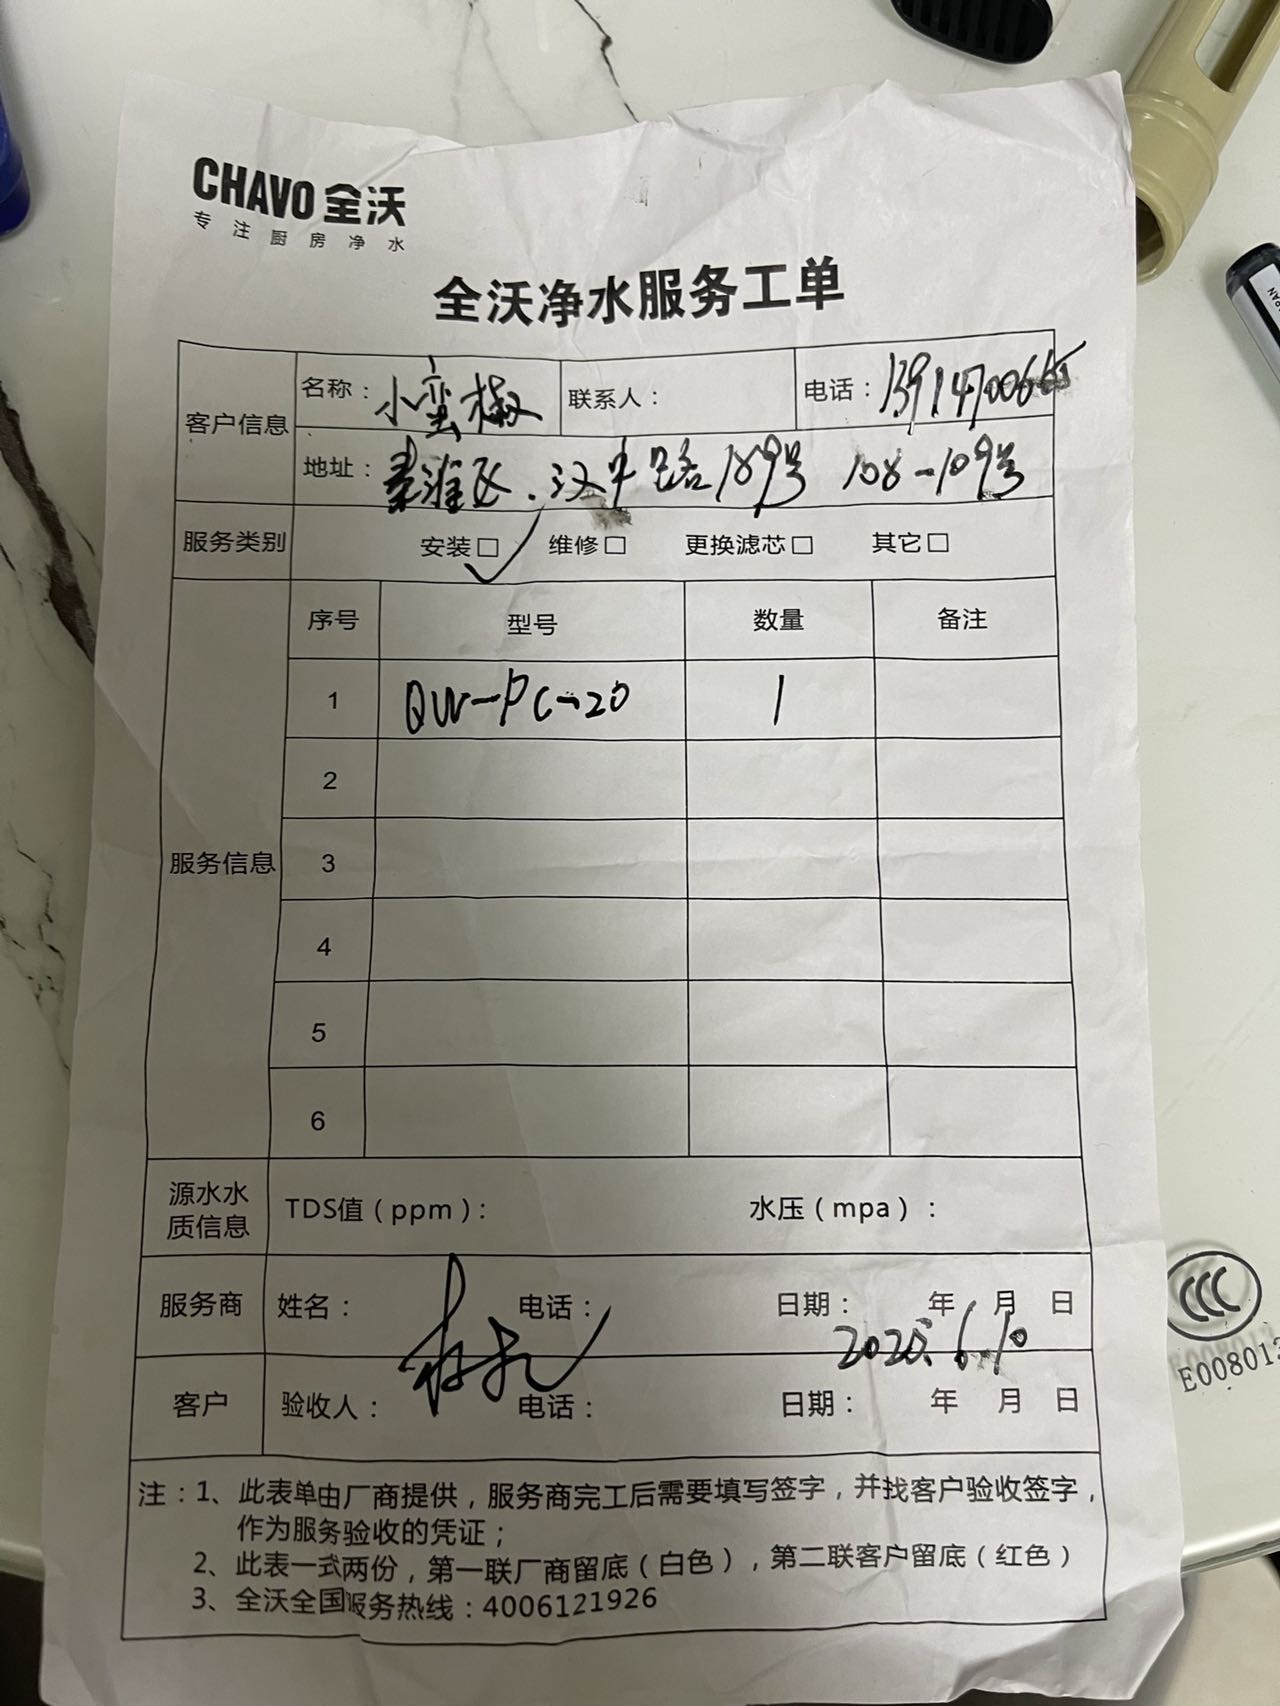 CHAVO 全沃
专注厨房净水
全沃净水服务工单
客户信息 名称：小蛮椒 联系人： 电话：
地址：秦淮区.汉中路189号 108-109号
服务类别 安装□ ✓ 维修□ 更换滤芯□ 其它□
服务信息 序号 型号 数量 备注
1 QW-PC-20 1
2
3
4
5
6
源水水质信息 TDS值（ppm）： 水压（mpa）：
服务商 姓名： 电话： 日期： 年 月 日
2025.6.10
客户 验收人： 电话： 日期： 年 月 日
注：1、此表单由厂商提供，服务商完工后需要填写签字，并找客户验收签字，
作为服务验收的凭证；
2、此表一式两份，第一联厂商留底（白色），第二联客户留底（红色）
3、全沃全国服务热线：4006121926
CCC